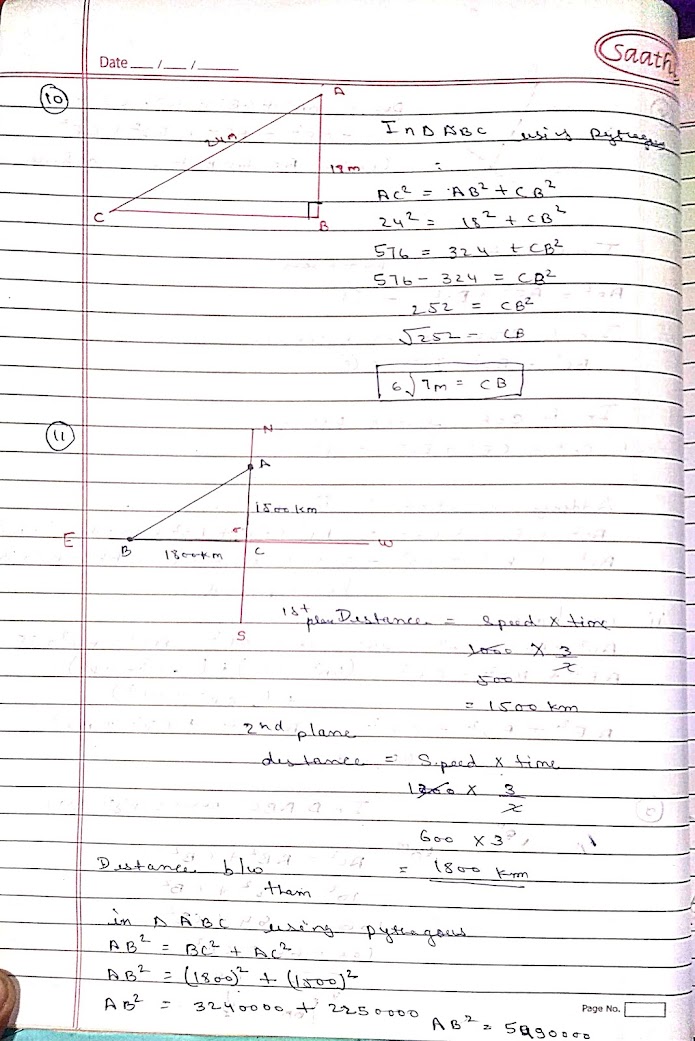 Saathi
Date __/__/____
10
A
24m
18m
C
B
In Δ ABC using
:
AC² = AB² + CB²
24² = 18² + CB²
576 = 324 + CB²
576 - 324 = CB²
252 = CB²
√252 = CB
6√7m = CB
11
N
A
1500 km
E
B
1800km
C
W
S
1st plan Distance = Speed x time
1000 x 3/2
500
= 1500 km
2nd plane
distance = Speed x time
1200 x 3/2
600 x 3
Distance b/w = 1800 km
tham
in Δ ABC using pytragous
AB² = BC² + AC²
AB² = (1800)² + (1500)²
AB² = 3240000 + 2250000
AB² = 5490000
Page No.